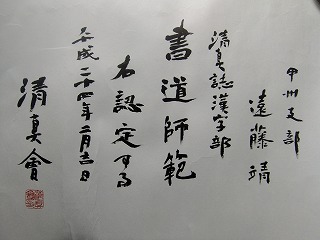 甲州支部
遠藤靖
清真誌漢字部
書道師範
右認定する
平成二十四年二月吉日
清真會